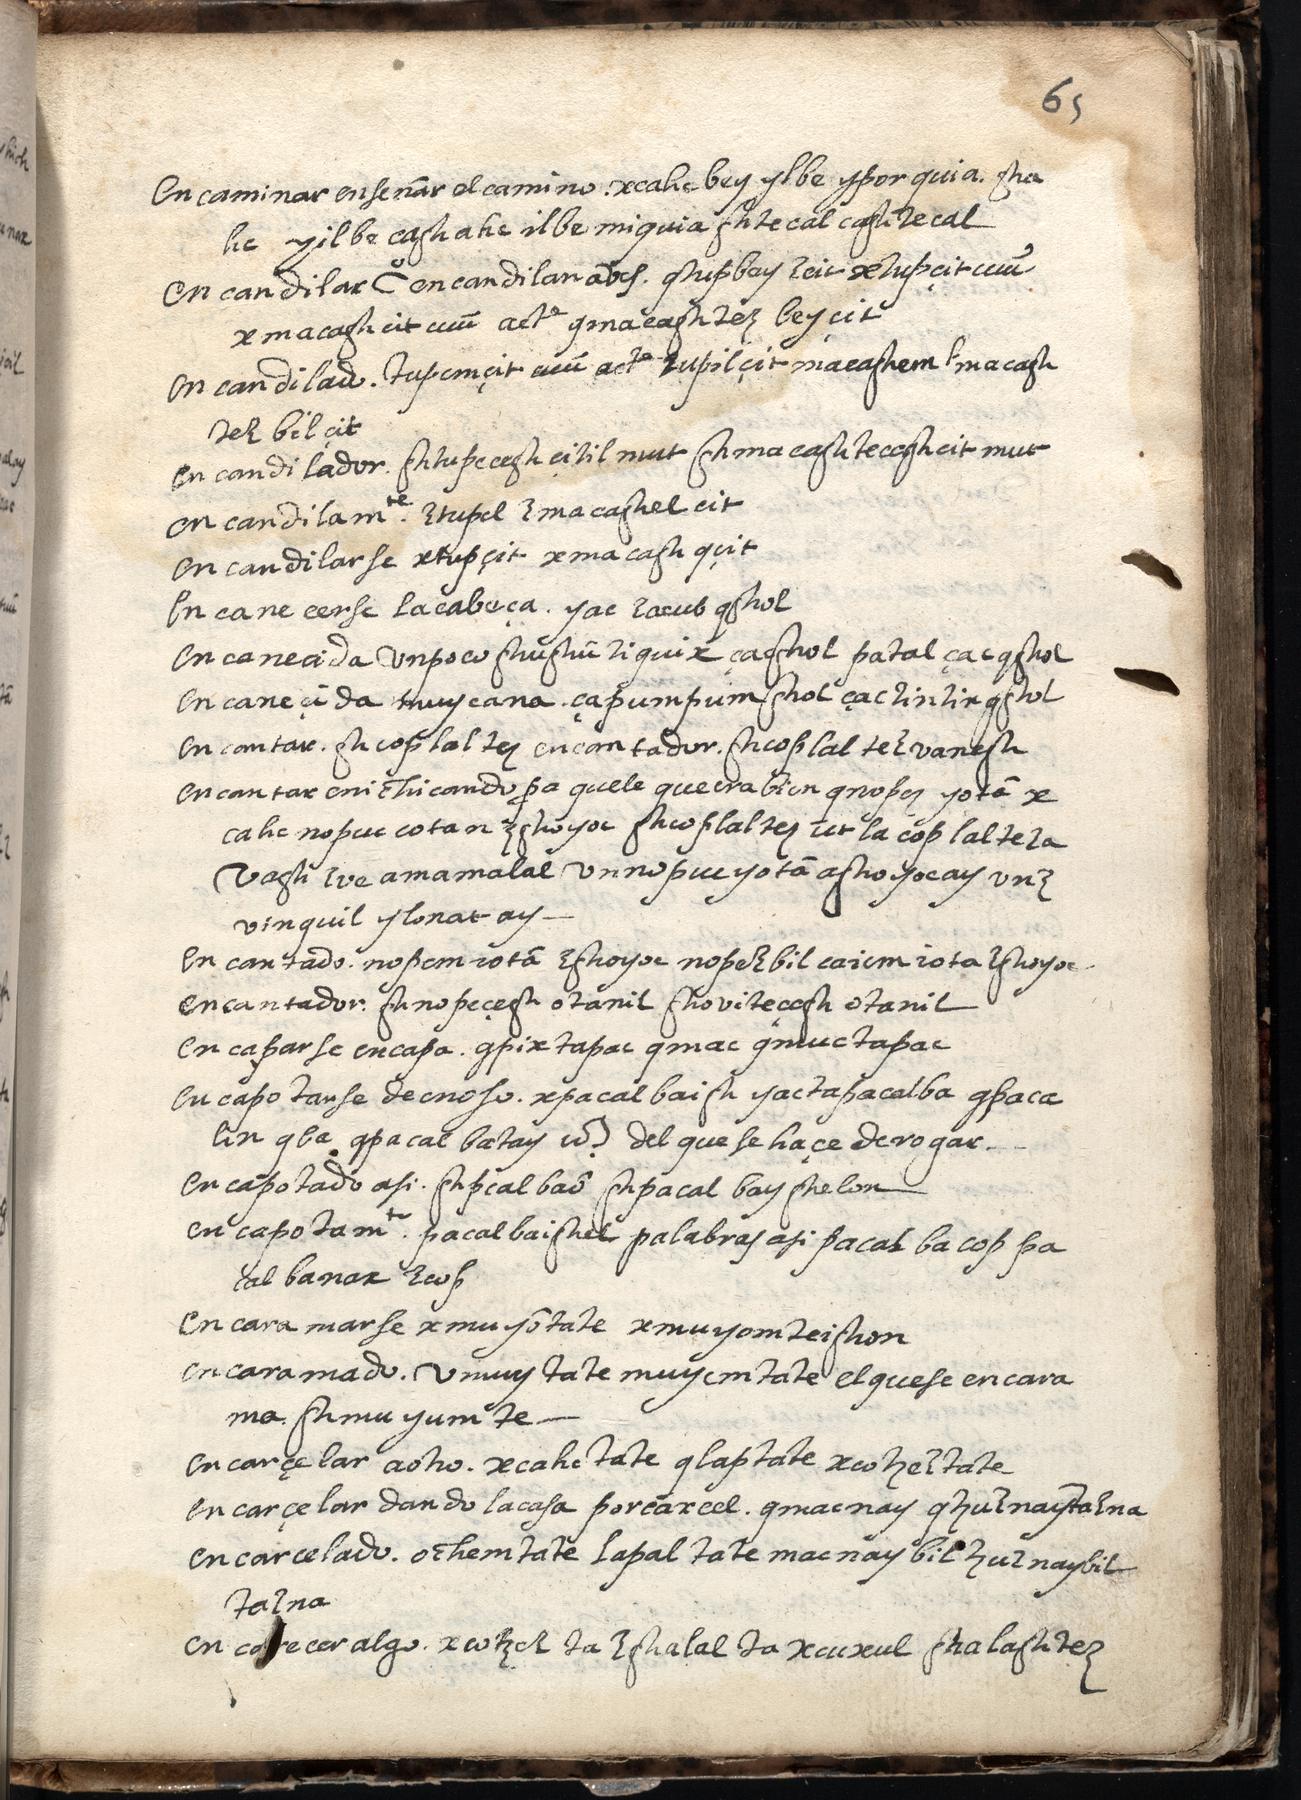 65
En caminar ensenar el camino. xcahe bey ylbe ypor quia. sha
he yilbe cashahe ilbe miquia shtecal cashtecal
En candilar encandilar aves. qtupbey xtupçit
xmacashcit qmacashtez beyçit
En candilado. tupemçit tupilçit macashem l macash
tez bilçit
En candilador. shtupecesh çitil mut shmacashtecesh cit mut
En candilamte. ztupel zmacashel cit
En candilarse xtupçit xmacash qçit
En canecerse la cabeça. yac qshol
En canecida un poco çacshol patal çac qshol
En caneçida muy cana. çapumpum shol çactintin qshol
En cantar. shcoplaltez encantador. shcoplaltezvanesh
En cantar enechicando pa quele quera bien qnopez yotã x
cahe nopuc cotan zshoyoc shcoplaltez la coplalteza
Vagh zve amamalal Vn nopuc yotã ashoyocay
vinquil ylonat ay—
En cantado. nopem yotã zshoyoc nopezbil caiem iota zshoyoc
En cantador. shnopeçesh otanil shoviteçesh otanil
En caparse en capa. qpixtapac qmac qmuctapac
En capotarse de enojo. xpacalbaish yactapacalba qpaca
lin qba qpacal batay del que se haçe de rogar.
En capotado asi. shpcal bao shpacal bayshelon
En capotamto. pacalbaishel palabras asi pacal ba cop pa
cal banax zcop
En caramarse xmuyõtate xmuyomteishon
En caramado. Vmuytate muyemtate el que se encara
ma. shmuyumte—
En carçelar a otro. xcahe tate qlaptate xcotzeztate
En carçelar dando la casa por carcel. qmacnay qtzuznay tazna
En carcelado. ochemtate lapaltate macnaybil tzuznaybil
tazna
En carecer algo. xcotzez ta zshalal ta xcuxul shalashtez